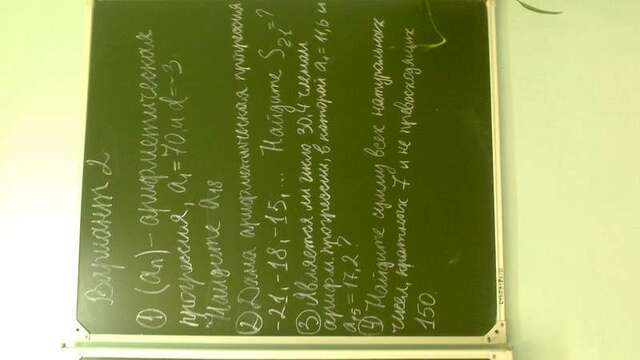 Вариант 2
① (an) – арифметическая
прогрессия, a₁ = 70, и d = -3
Найдите a₁₈
② Дана арифметическая прогрессия
-21, -18, -15, ... Найдите S₂₁ = ?
③ Является ли число 30,4 членом
арифм. прогрессии, в которой a₁ = 11,6 и
a₁₅ = 17,2?
④ Найдите сумму всех натуральных
чисел, кратных 7 и не превосходящих
150.